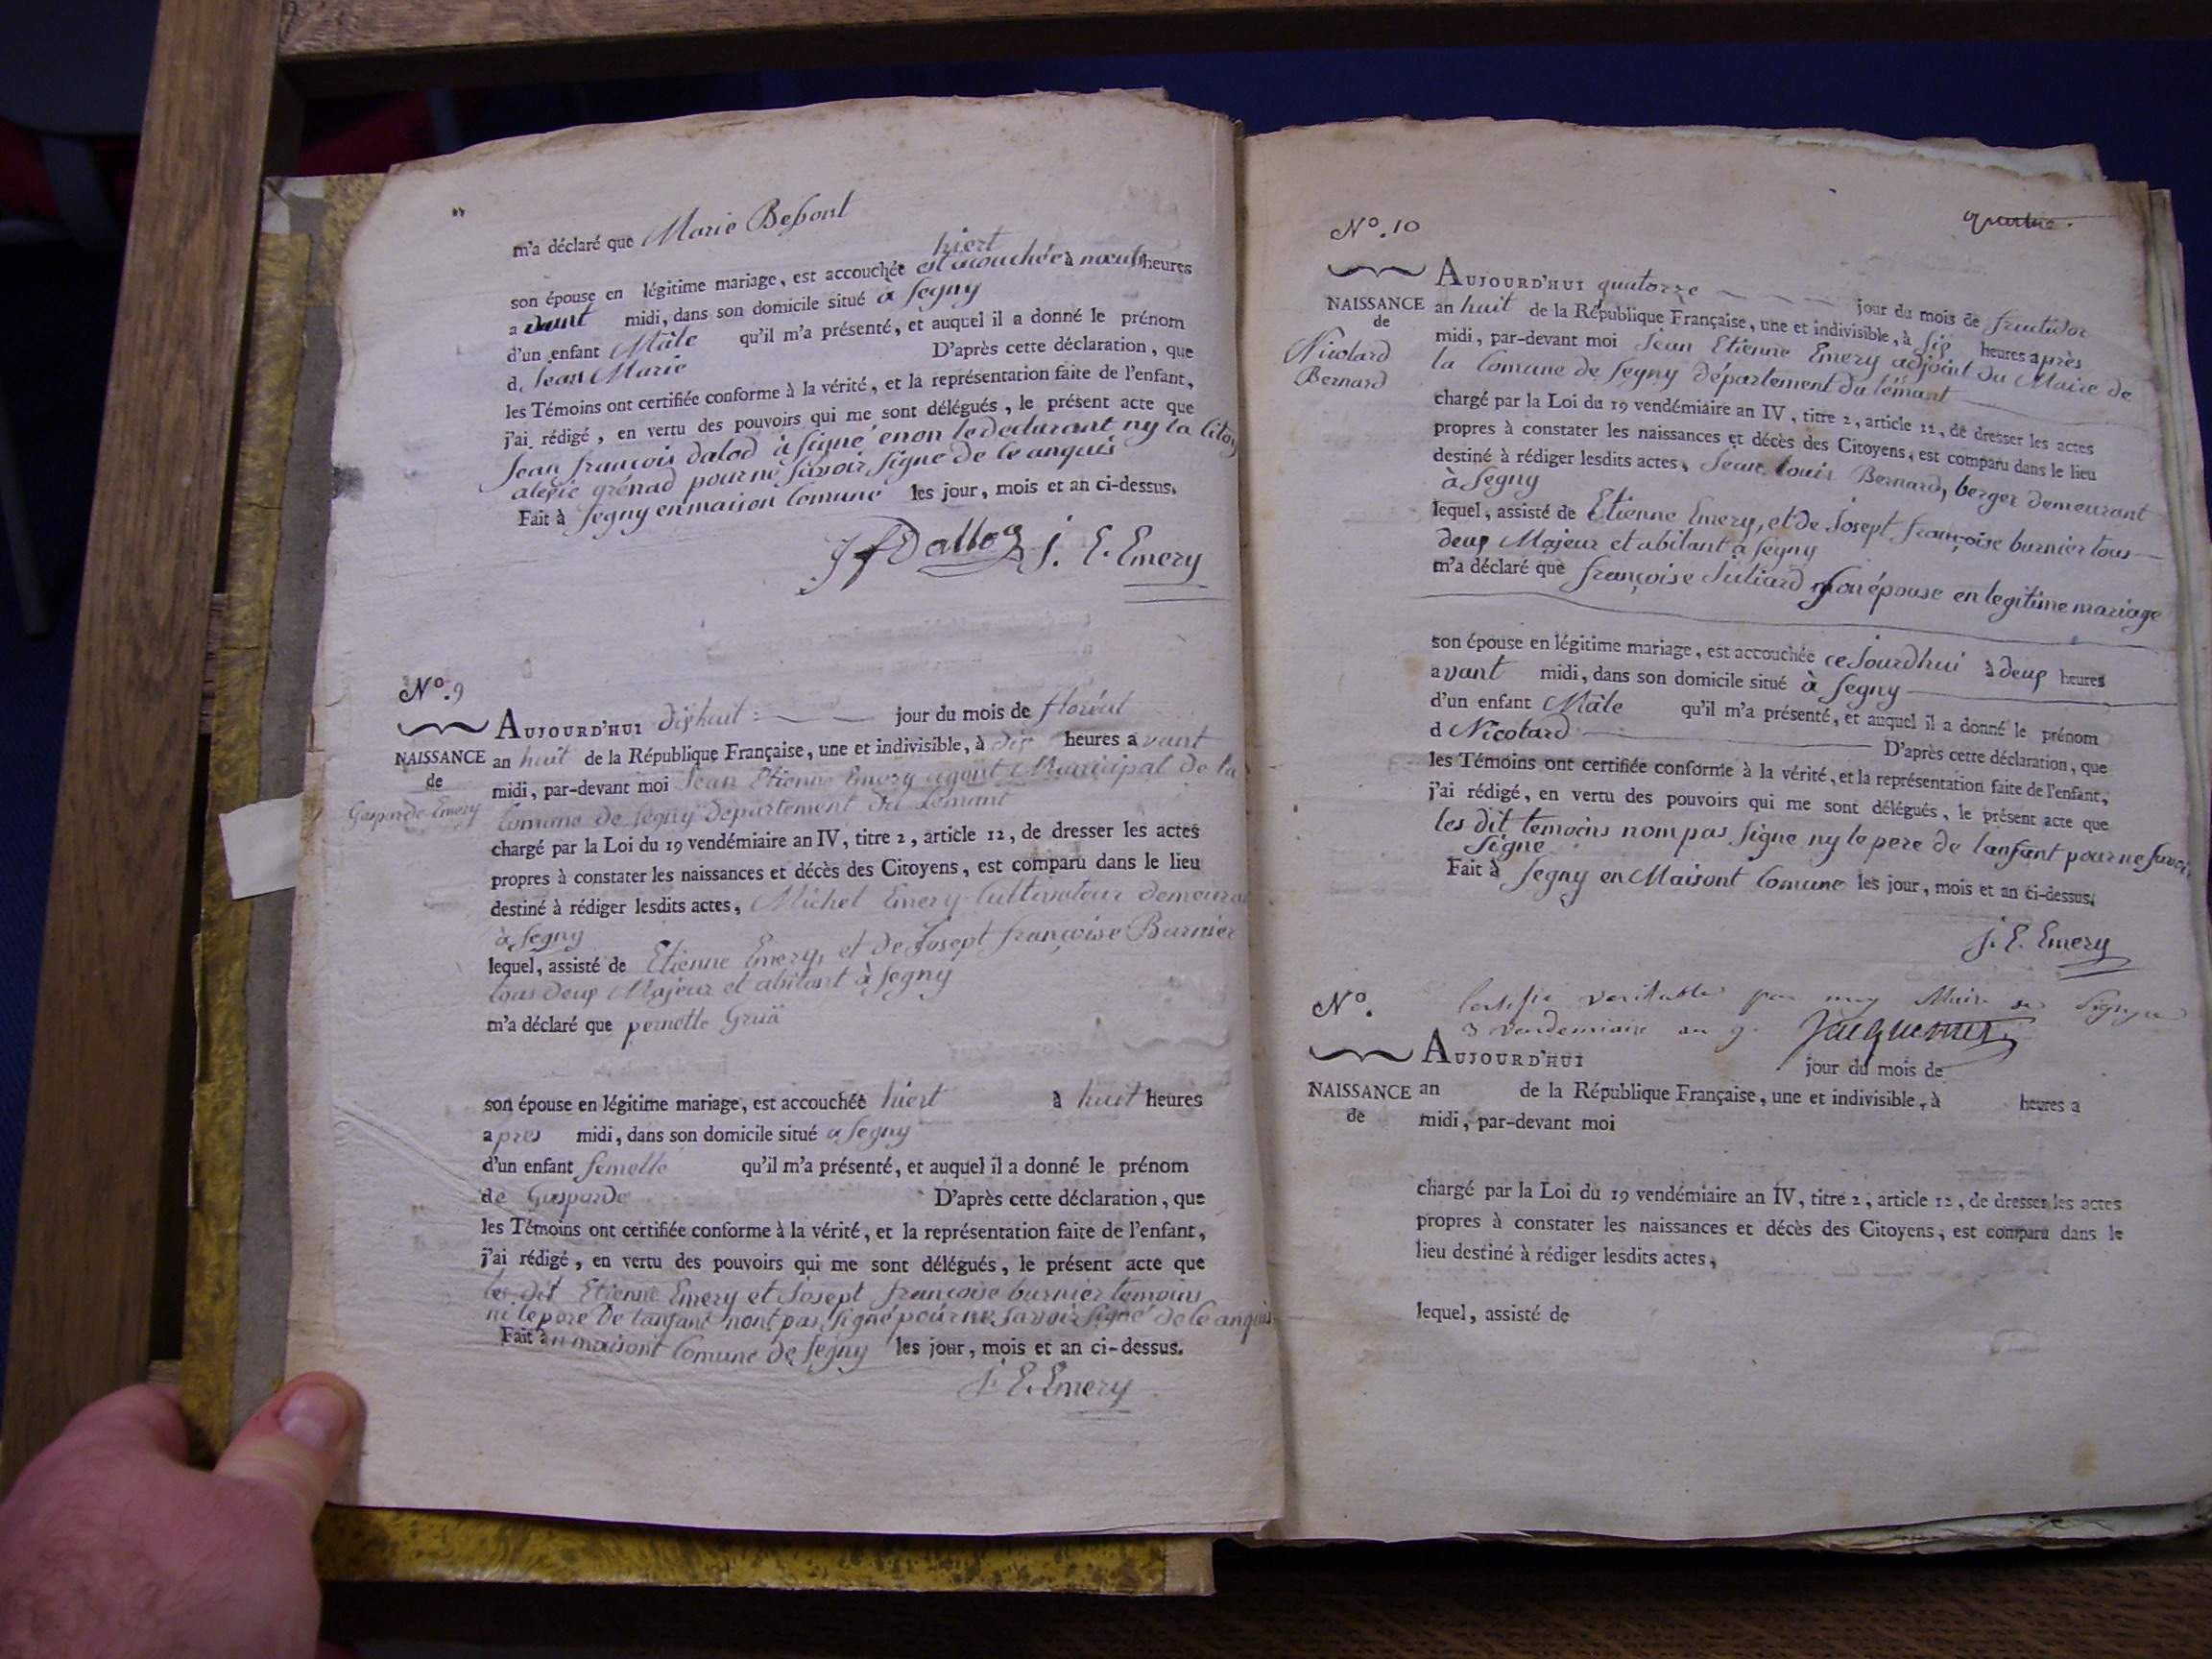 m'a déclaré que Marie Besont
hiert
son épouse en légitime mariage, est accouchée est acouchée à nœuf heures
avant midi, dans son domicile situé à Segny
d'un enfant Mâle qu'il m'a présenté, et auquel il a donné le prénom
d. Jean Marie D'après cette déclaration, que
les Témoins ont certifiée conforme à la vérité, et la représentation faite de l'enfant,
j'ai rédigé, en vertu des pouvoirs qui me sont délégués, le présent acte que
Jean francois dalod à Signé enon le declarant ny la Citoy
alexie grénad pour ne savoir signe de ce anquis
Fait à Segny en maison Comune les jour, mois et an ci-dessus.
J f Dalloz J. E. Emery
N°. 9
AUJOURD'HUI dixhuit jour du mois de floréal
NAISSANCE an huit de la République Française, une et indivisible, à dix heures avant
de
midi, par-devant moi Jean Etienne Emery agent Municipal de la
Gasparde Emery
Comune de Segny département du Lemant
chargé par la Loi du 19 vendémiaire an IV, titre 2, article 12, de dresser les actes
propres à constater les naissances et décès des Citoyens, est comparu dans le lieu
destiné à rédiger lesdits actes, Michel Emery Cultivateur demeura
à Segny
lequel, assisté de Etienne Emery, et de Josept françoise Burnier
tous deux Majeur et abitant à Segny
m'a déclaré que pernette Grua
son épouse en légitime mariage, est accouchée hiert à huit heures
apres midi, dans son domicile situé a Segny
d'un enfant femelle qu'il m'a présenté, et auquel il a donné le prénom
de Gasparde D'après cette déclaration, que
les Témoins ont certifiée conforme à la vérité, et la représentation faite de l'enfant,
j'ai rédigé, en vertu des pouvoirs qui me sont délégués, le présent acte que
les dit Etienne Emery et Josept francoise burnier temoins
ni le pere de lanfant nont pas signé pour ne savoir signé de ce anquis
Fait à en maisont Comune de Segny les jour, mois et an ci-dessus.
J. E. Emery
N°. 10
AUJOURD'HUI quatorze jour du mois de fructidor
NAISSANCE an huit de la République Française, une et indivisible, à six heures après
de
midi, par-devant moi Jean Etienne Emery adjoint du Maire de
Nicolard
la Comune de Segny département du lémant
Bernard
chargé par la Loi du 19 vendémiaire an IV, titre 2, article 12, de dresser les actes
propres à constater les naissances et décès des Citoyens, est comparu dans le lieu
destiné à rédiger lesdits actes, Jean Louis Bernard, berger demeurant
à Segny
lequel, assisté de Etienne Emery, et de Josept françoise burnier tous
deux Majeur et abitant à Segny
m'a déclaré que françoise Juliard son épouse en legitime mariage
son épouse en légitime mariage, est accouchée ce Jourdhui à deux heures
avant midi, dans son domicile situé à Segny
d'un enfant Mâle qu'il m'a présenté, et auquel il a donné le prénom
d Nicolard D'après cette déclaration, que
les Témoins ont certifiée conforme à la vérité, et la représentation faite de l'enfant,
j'ai rédigé, en vertu des pouvoirs qui me sont délégués, le présent acte que
les dit temoins nom pas signe ny le pere de lanfant pour ne savoir
Signe
Fait à Segny en Maisont Comune les jour, mois et an ci-dessus.
J. E. Emery
N°. Certifié veritable par moy Maire de Segny
3 vendemiaire an 9. Jacquemet
AUJOURD'HUI jour du mois de
NAISSANCE an de la République Française, une et indivisible, à heures a
de
midi, par-devant moi
chargé par la Loi du 19 vendémiaire an IV, titre 2, article 12, de dresser les actes
propres à constater les naissances et décès des Citoyens, est comparu dans le
lieu destiné à rédiger lesdits actes,
lequel, assisté de